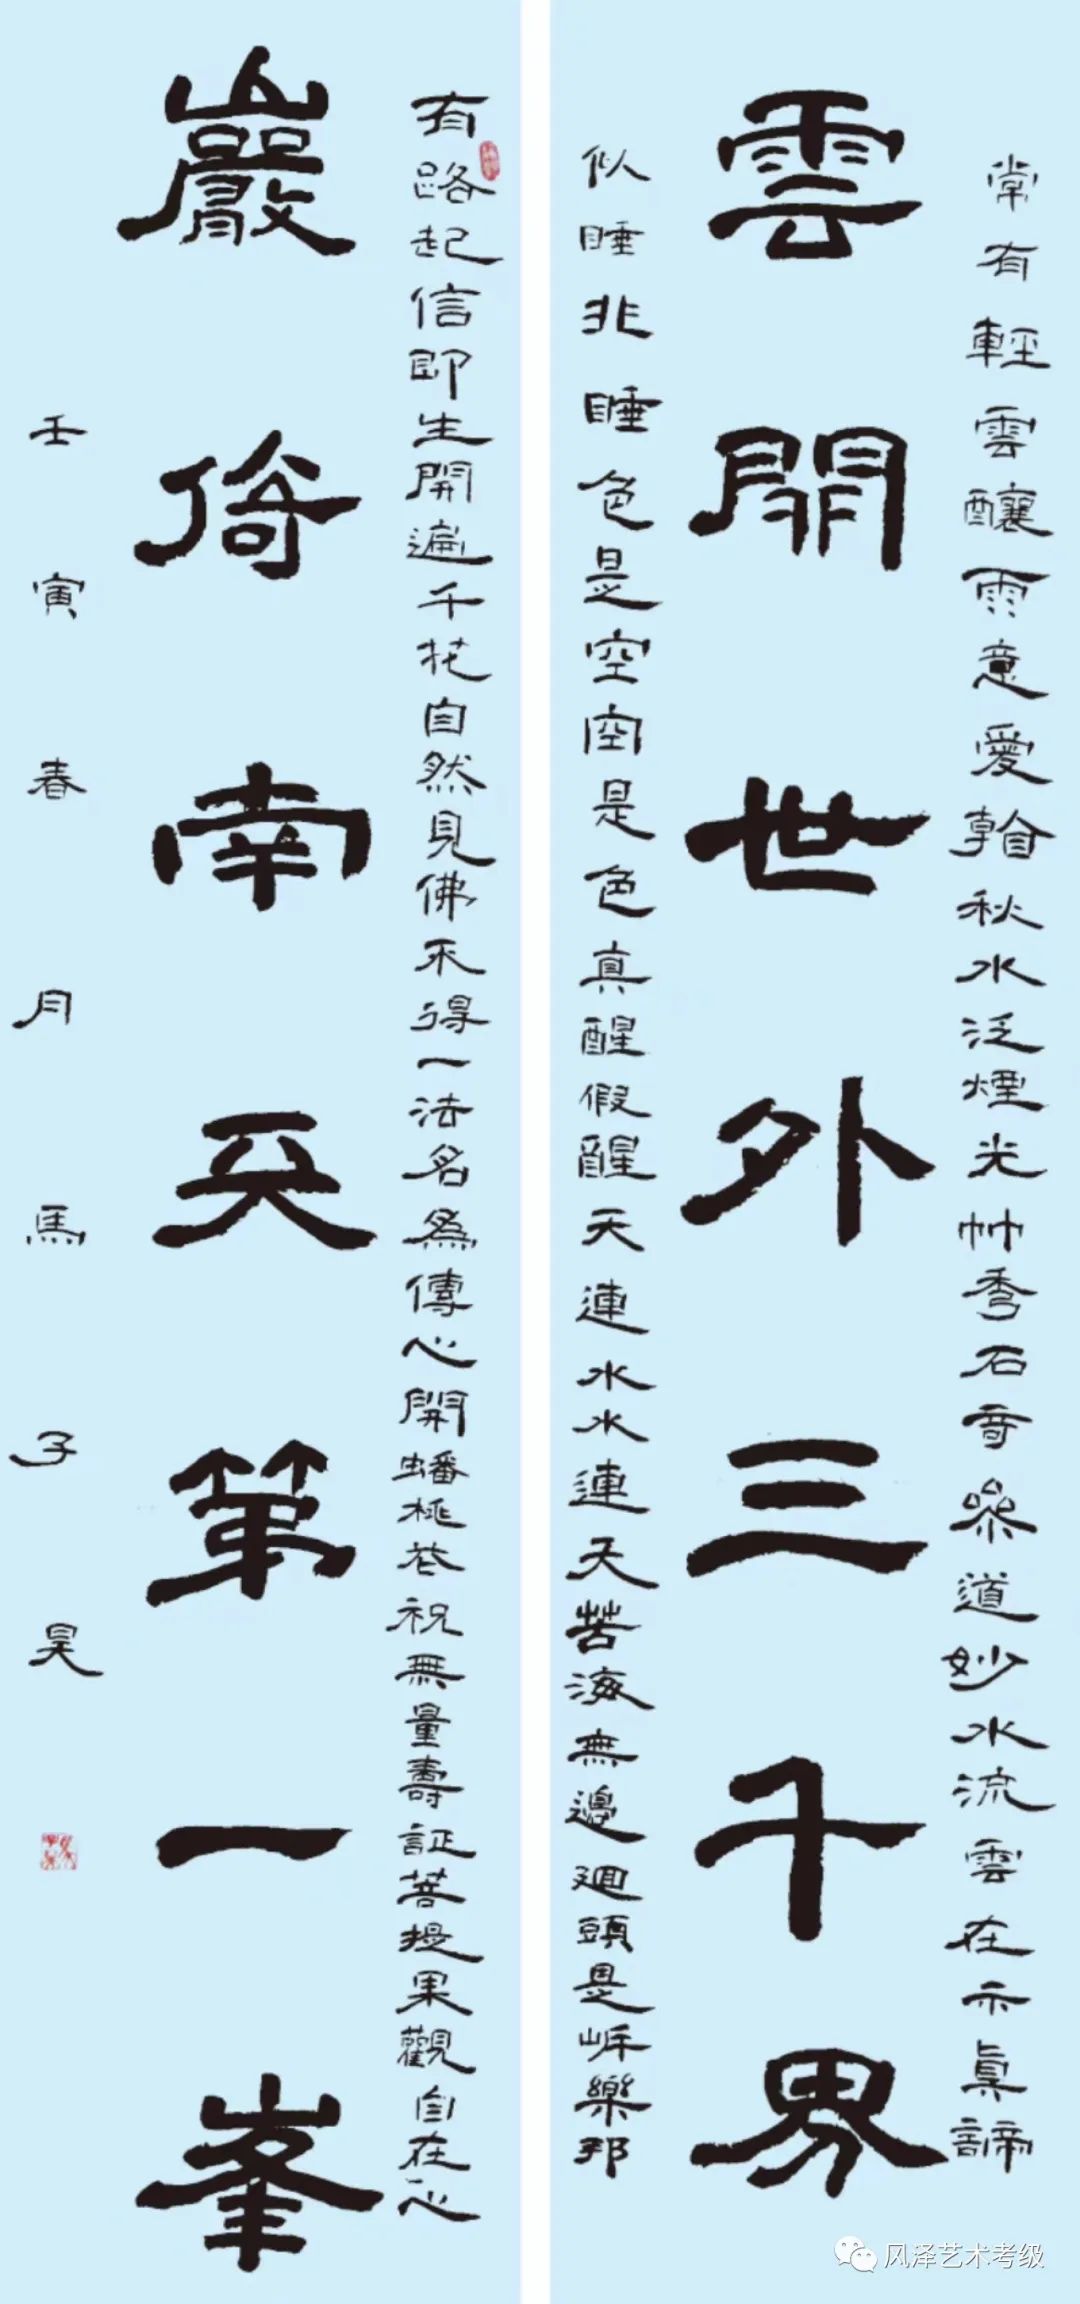 常有輕雲釀雨意愛看秋水泛煙光竹秀石奇參道妙水流雲在示真諦
雲開世外三千界
似睡非睡色是空空是色真醒假醒天連水水連天苦海無邊迴頭是岸樂邦
有路起信即生開遍千花自然見佛不得一法名為傳心開蟠桃花祝無量壽証菩提果觀自在心
巖倚南天第一峯
壬寅春月馬子昊
风泽艺术考级